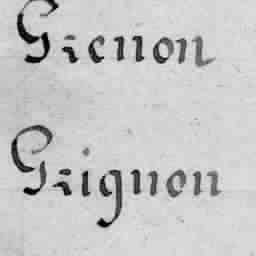 Grenon
Grignon